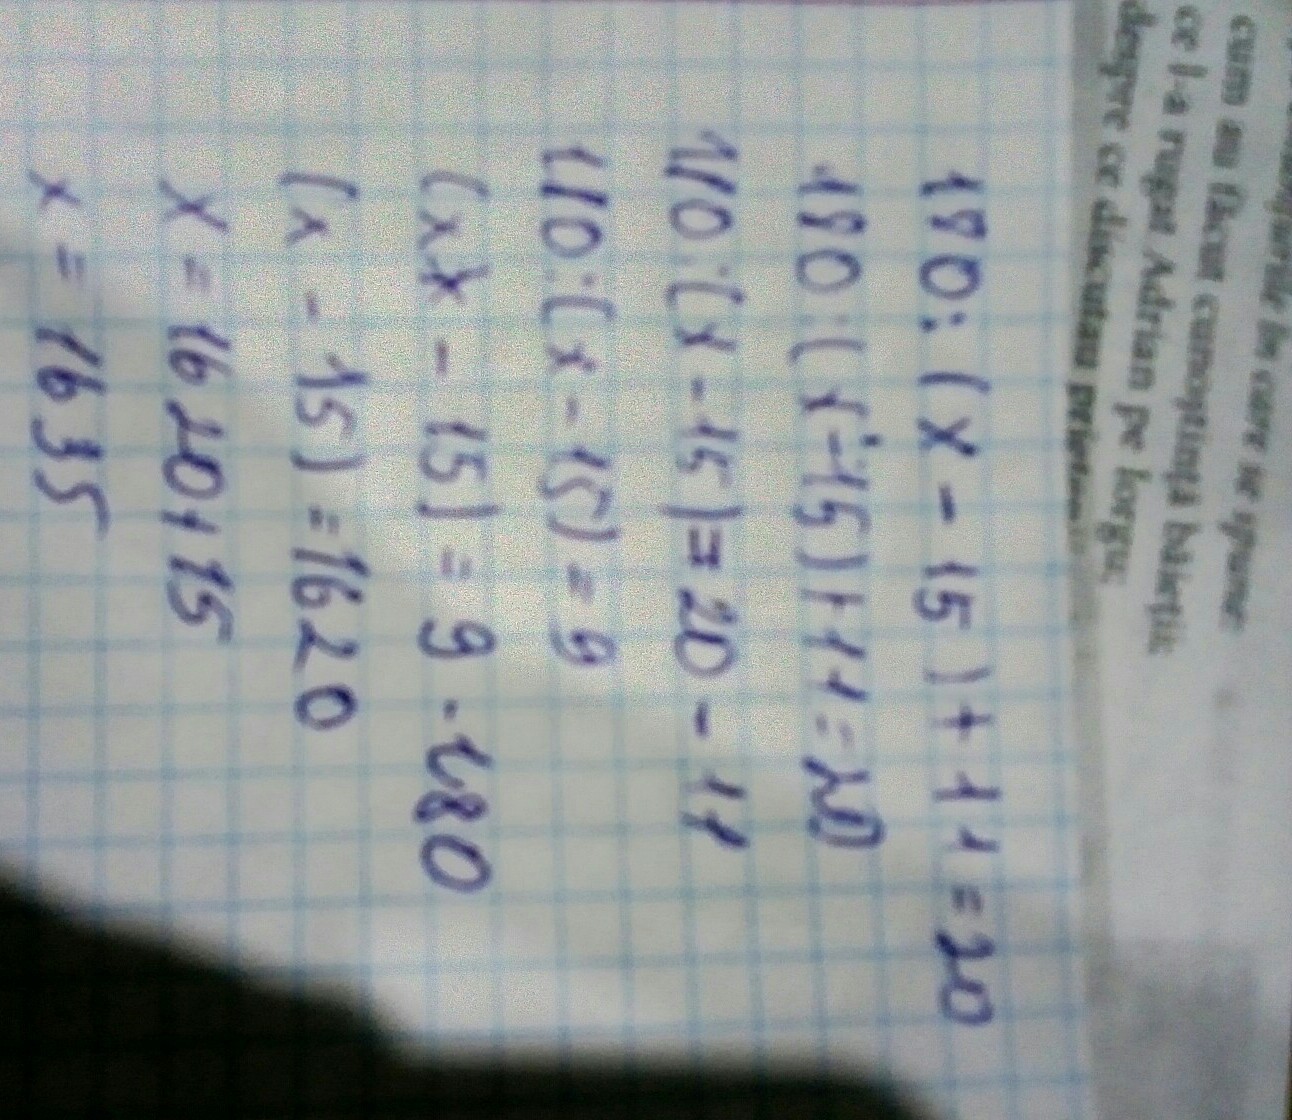 cum au făcut cunoștință băieții;
ce l-a rugat Adrian pe Iorgu;
despre ce discutau
180 : (x - 15) + 11 = 20
180 : (x - 15) + 11 = 20
180 : (x - 15) = 20 - 11
180 : (x - 15) = 9
(x - 15) = 9 . 180
(x - 15) = 1620
x = 1620 + 15
x = 1635